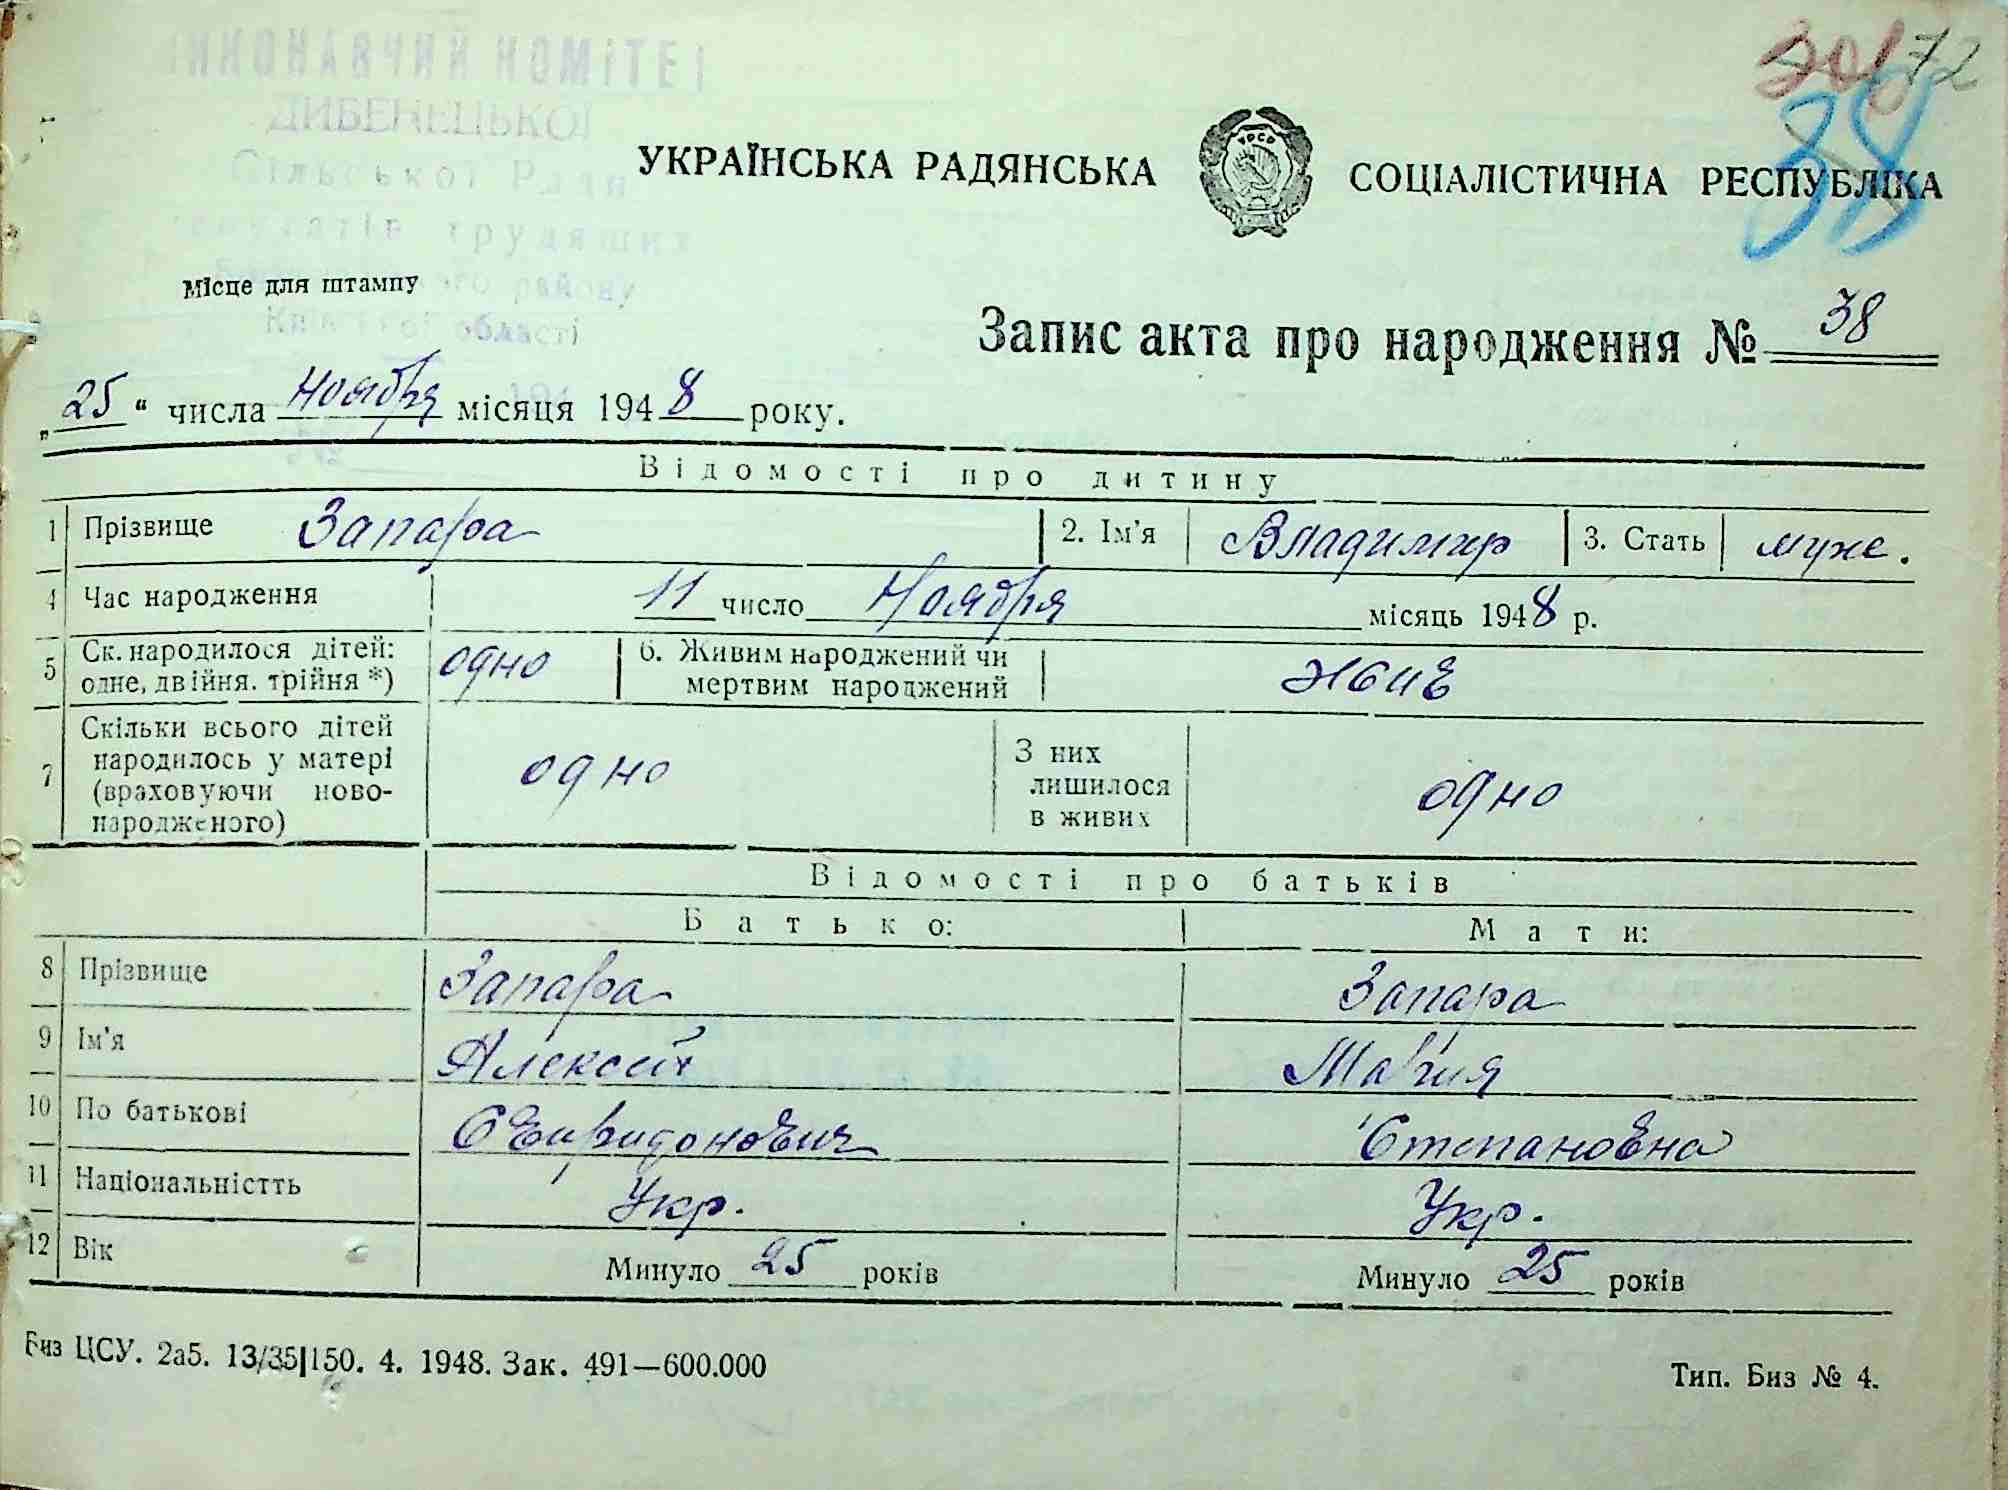 ВИКОНАВЧИЙ КОМІТЕТ
ДИБЕНЕЦЬКОЇ
Сільської Ради
депутатів трудящих
району
Київської області
72
38
УКРАЇНСЬКА РАДЯНСЬКА СОЦІАЛІСТИЧНА РЕСПУБЛІКА
Місце для штампу
Запис акта про народження № 38
„25“ числа Ноября місяця 1948 року.
Відомості про дитину
1 Прізвище Запара 2. Ім'я Владимир 3. Стать муж.
4 Час народження 11 число Ноября місяць 1948 р.
5 Ск. народилося дітей: одно 6. Живим народжений чи живе
одне, двійня. трійня *) мертвим народжений
7 Скільки всього дітей
народилось у матері одно З них лишилося в живих одно
(враховуючи ново-
народженого)
Відомості про батьків
Батько: Мати:
8 Прізвище Запара Запара
9 Ім'я Алексей Мария
10 По батькові Свиридонович Степановна
11 Національністть Укр. Укр.
12 Вік Минуло 25 років Минуло 25 років
Биз ЦСУ. 2а5. 13/35|150. 4. 1948. Зак. 491—600.000 Тип. Биз № 4.